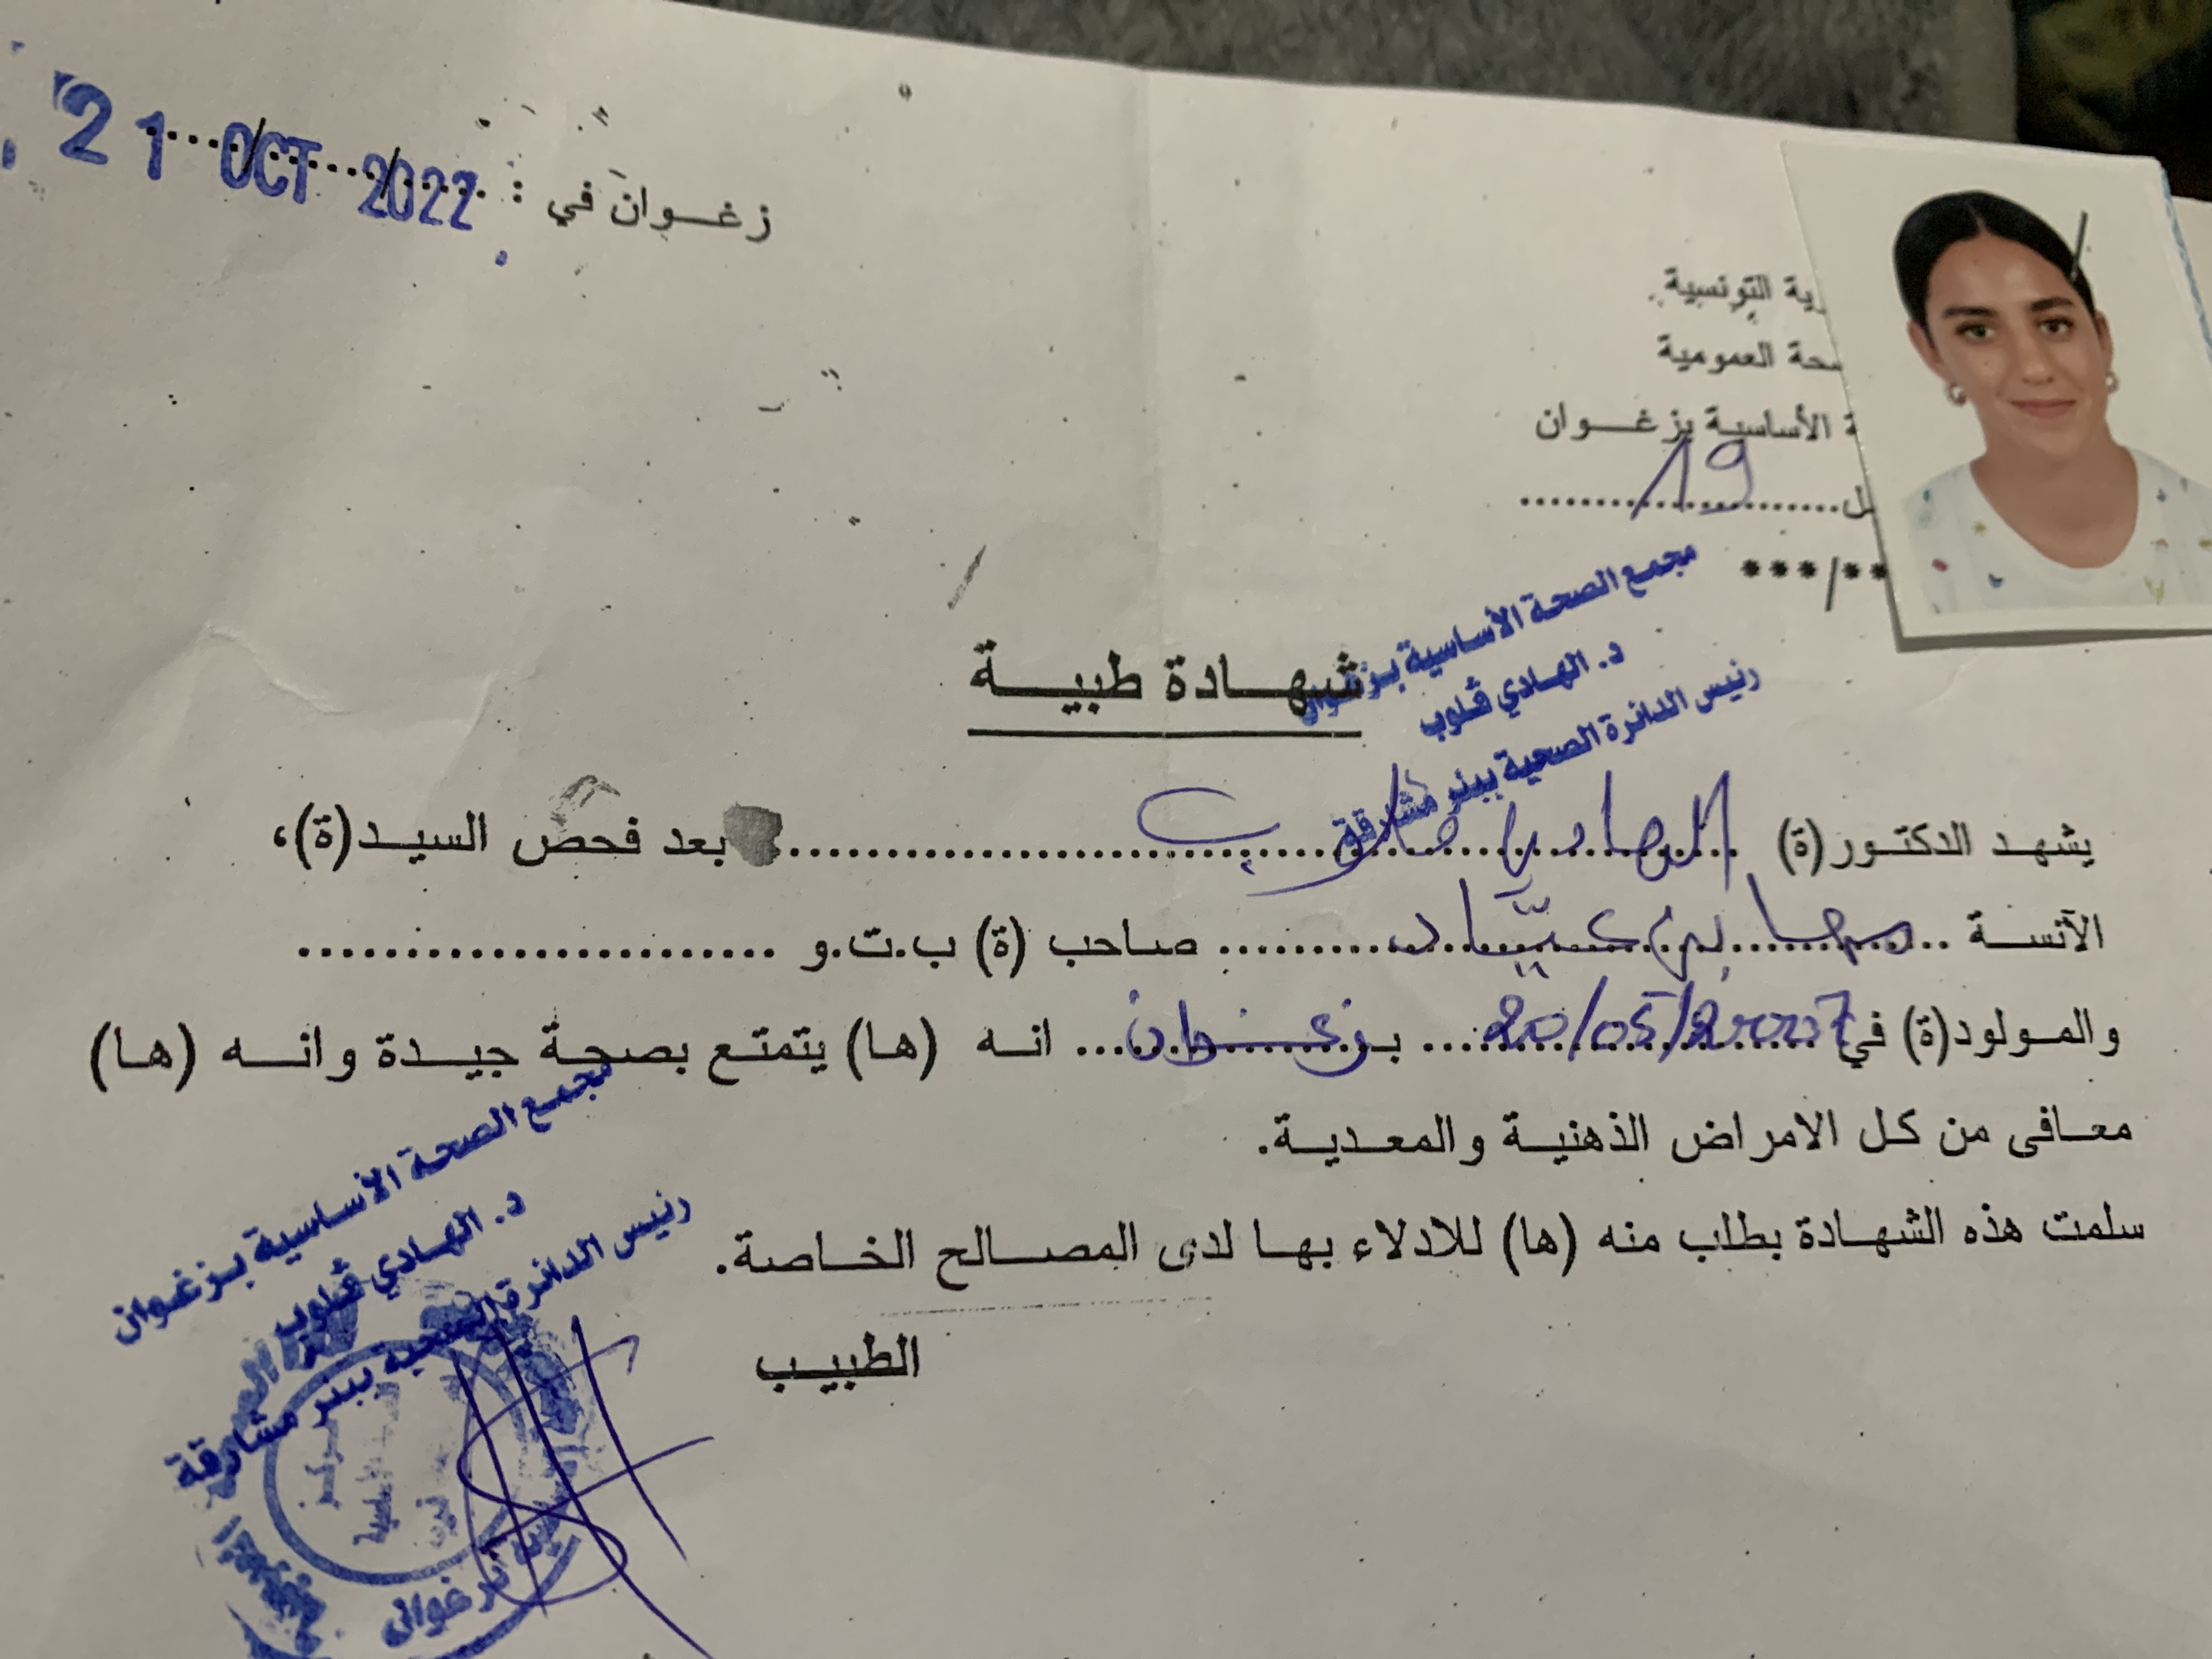 زغـوان في : 21 OCT 2022
ية التونسية
حة العمومية
ة الأساسية بزغـوان
ل 19
***/**
مجمع الصحة الأساسية بزغوان
د. الهادي ڨلوب
رئيس الدائرة الصحية ببئر مشارقة
شهـادة طبيـة
يشهد الدكتور(ة) الهادي ڨلوب بعد فحص السيد(ة)،
الآنسة مها بن عيّاد صاحب (ة) ب.ت.و
والمولود(ة) في 20/05/2007 بـ زغوان انه (ها) يتمتع بصحة جيدة وانه (ها)
معافى من كل الامراض الذهنية والمعدية.
سلمت هذه الشهادة بطلب منه (ها) للادلاء بها لدى المصالح الخاصة.
الطبيب
مجمع الصحة الأساسية بزغوان
د. الهادي ڨلوب
رئيس الدائرة الصحية ببئر مشارقة
زغوان